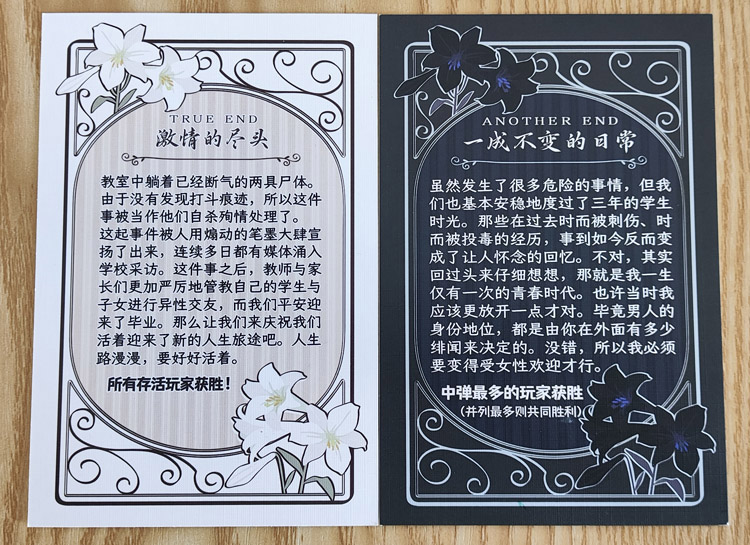 TRUE END
激情的尽头
教室中躺着已经断气的两具尸体。
由于没有发现打斗痕迹，所以这件
事被当作他们自杀殉情处理了。
这起事件被人用煽动的笔墨大肆宣
扬了出来，连续多日都有媒体涌入
学校采访。这件事之后，教师与家
长们更加严厉地管教自己的学生与
子女进行异性交友，而我们平安迎
来了毕业。那么让我们来庆祝我们
活着迎来了新的人生旅途吧。人生
路漫漫，要好好活着。
所有存活玩家获胜！
ANOTHER END
一成不变的日常
虽然发生了很多危险的事情，但我
们也基本安稳地度过了三年的学生
时光。那些在过去时而被刺伤、时
而被投毒的经历，事到如今反而变
成了让人怀念的回忆。不对，其实
回过头来仔细想想，那就是我一生
仅有一次的青春时代。也许当时我
应该更放开一点才对。毕竟男人的
身份地位，都是由你在外面有多少
绯闻来决定的。没错，所以我必须
要变得受女性欢迎才行。
中弹最多的玩家获胜
（并列最多则共同胜利）